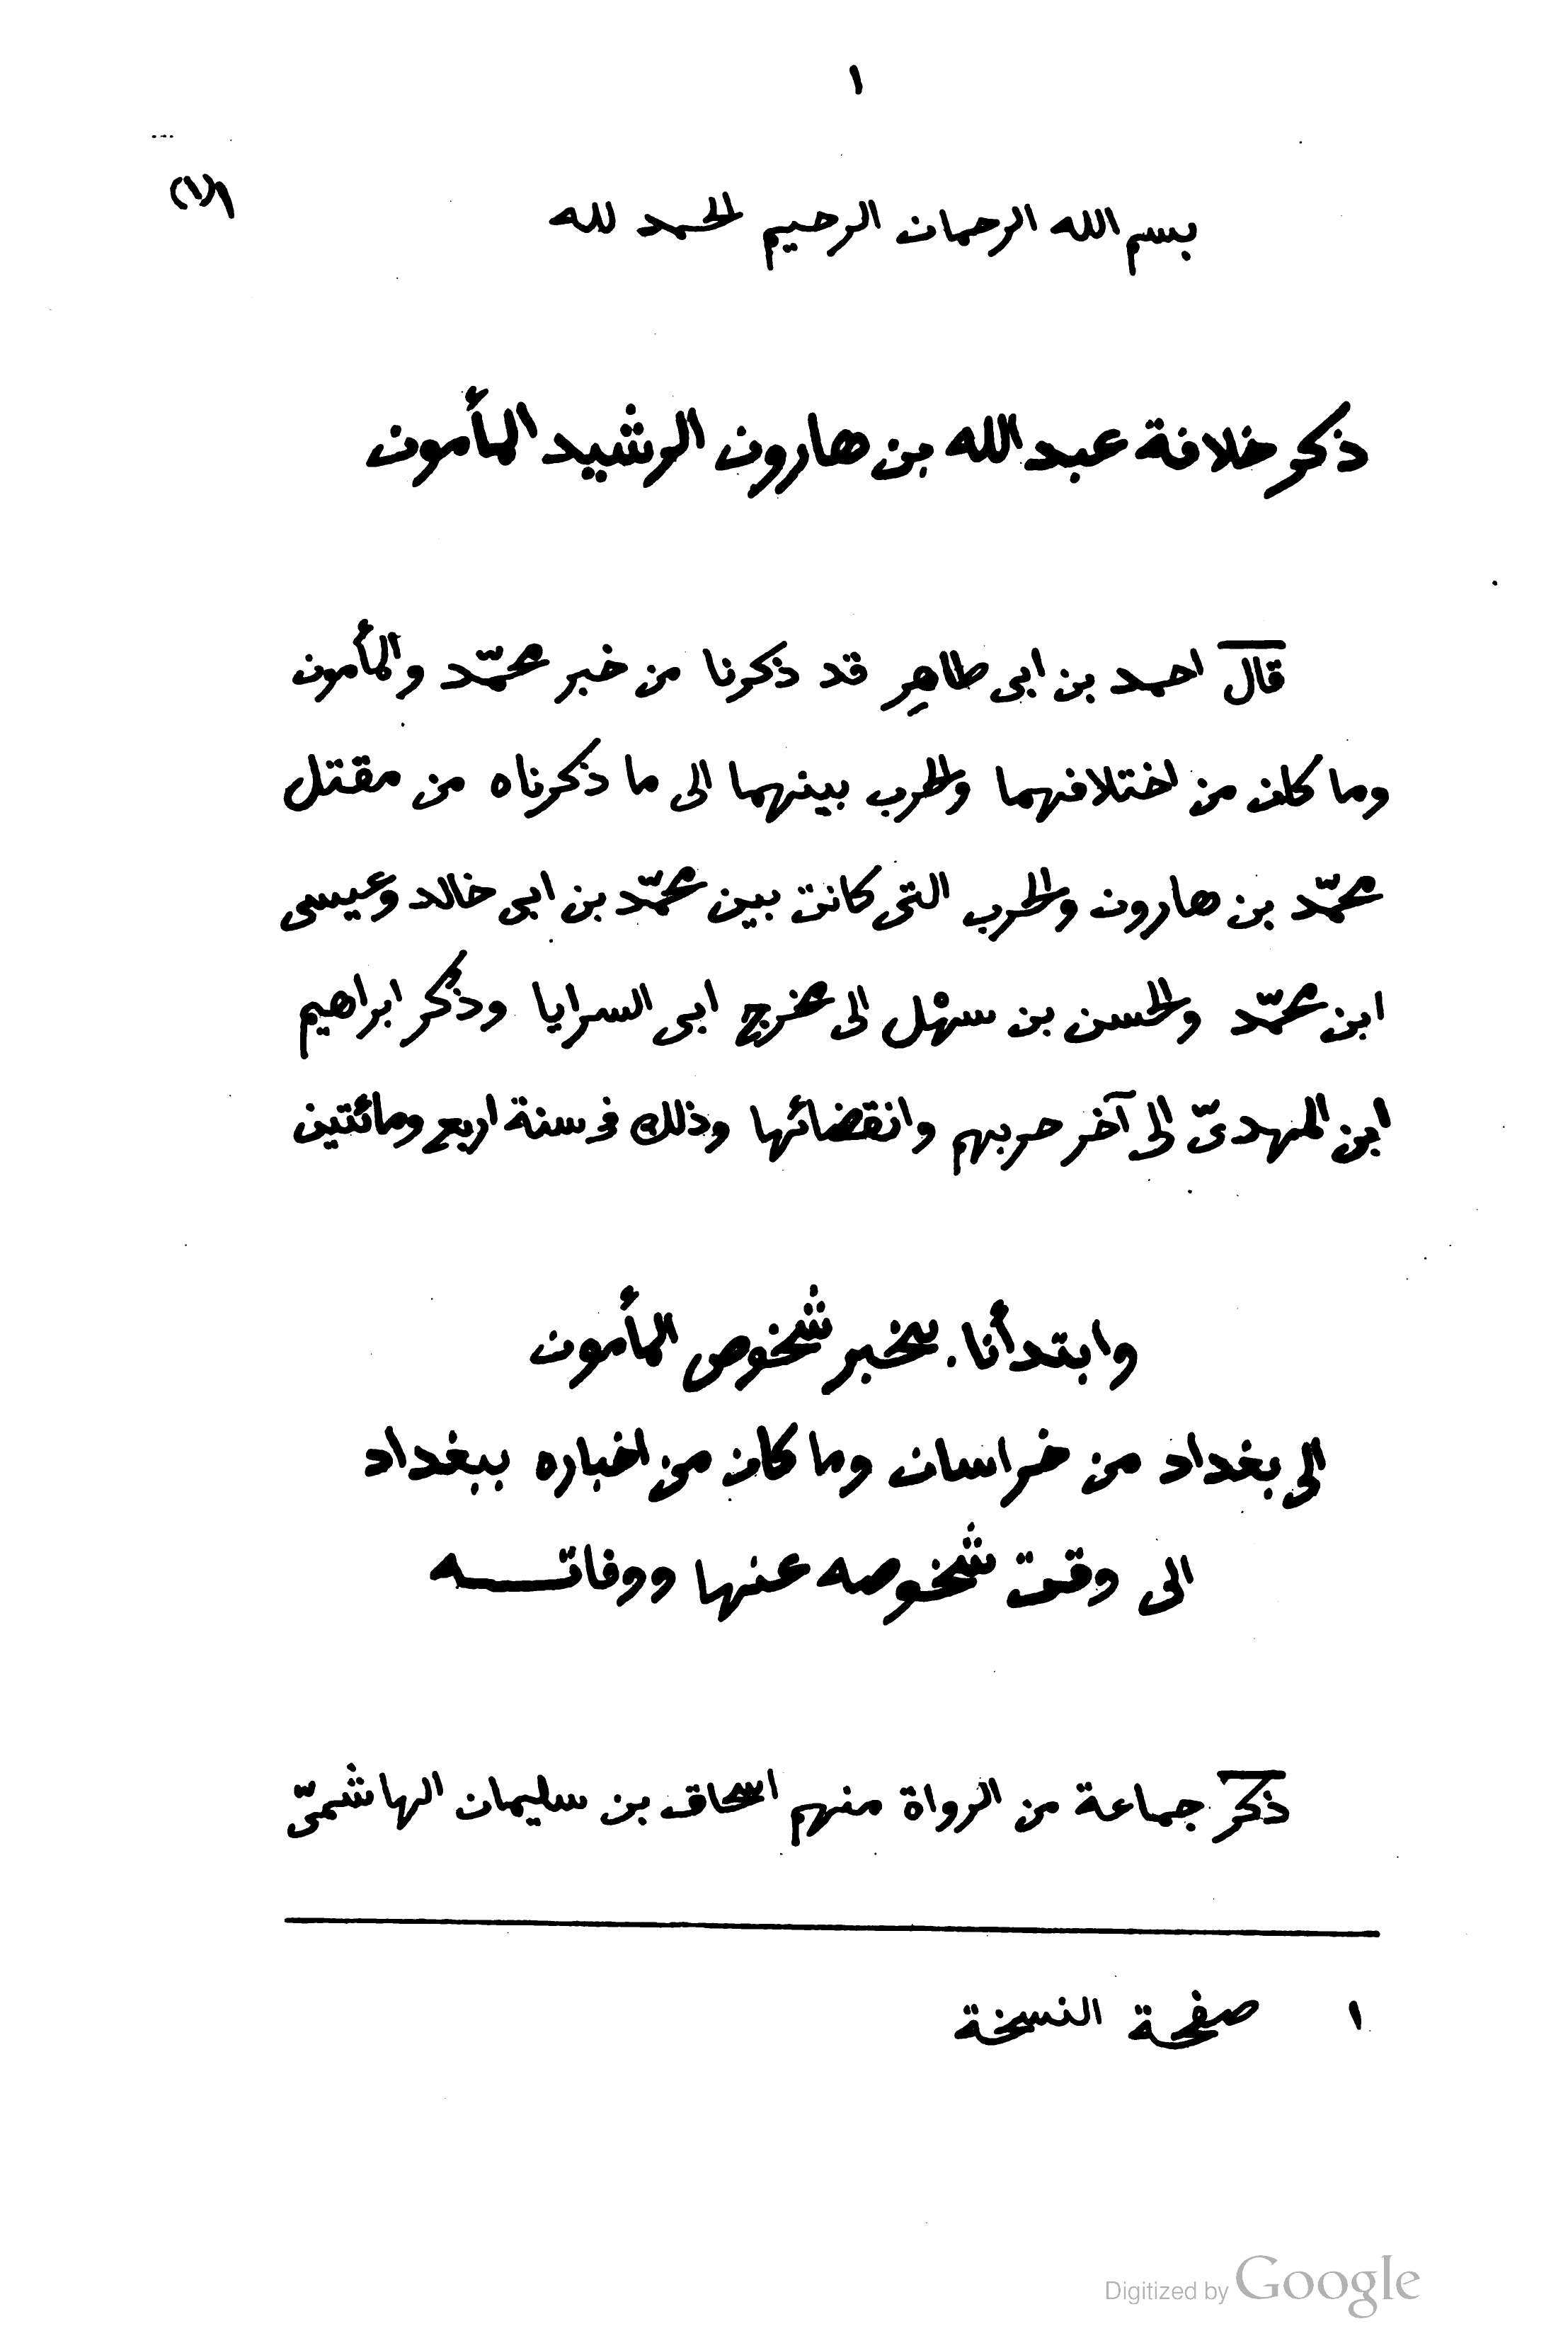 ١
١(١)
بسم الله الرحمان الرحيم الحمد لله
ذكر خلافة عبد الله بن هارون الرشيد المأمون
قال احمد بن ابى طاهِر قد ذكرنا من خبر محمّد والمأمون
وما كان من اختلافهما والحرب بينهما الى ما ذكرناه من مقتل
محمّد بن هارون والحرب التى كانت بين محمّد بن ابى خالد وعيسى
ابن محمّد والحسن بن سهْل الى مخرج ابى السرايا وذكر ابراهيم
ابن المهدىّ الى آخر حربهم وانقضائها وذلك فى سنة اربع ومائتين
وابتدأنا بخبر شخوص المأمون
الى بغداد من خراسان وما كان من اخباره ببغداد
الى وقت شخوصه عنها ووفاته
ذكر جماعة من الرواة منهم اسحاق بن سليمان الهاشمىّ
١ صفحة النسخة
Digitized by Google